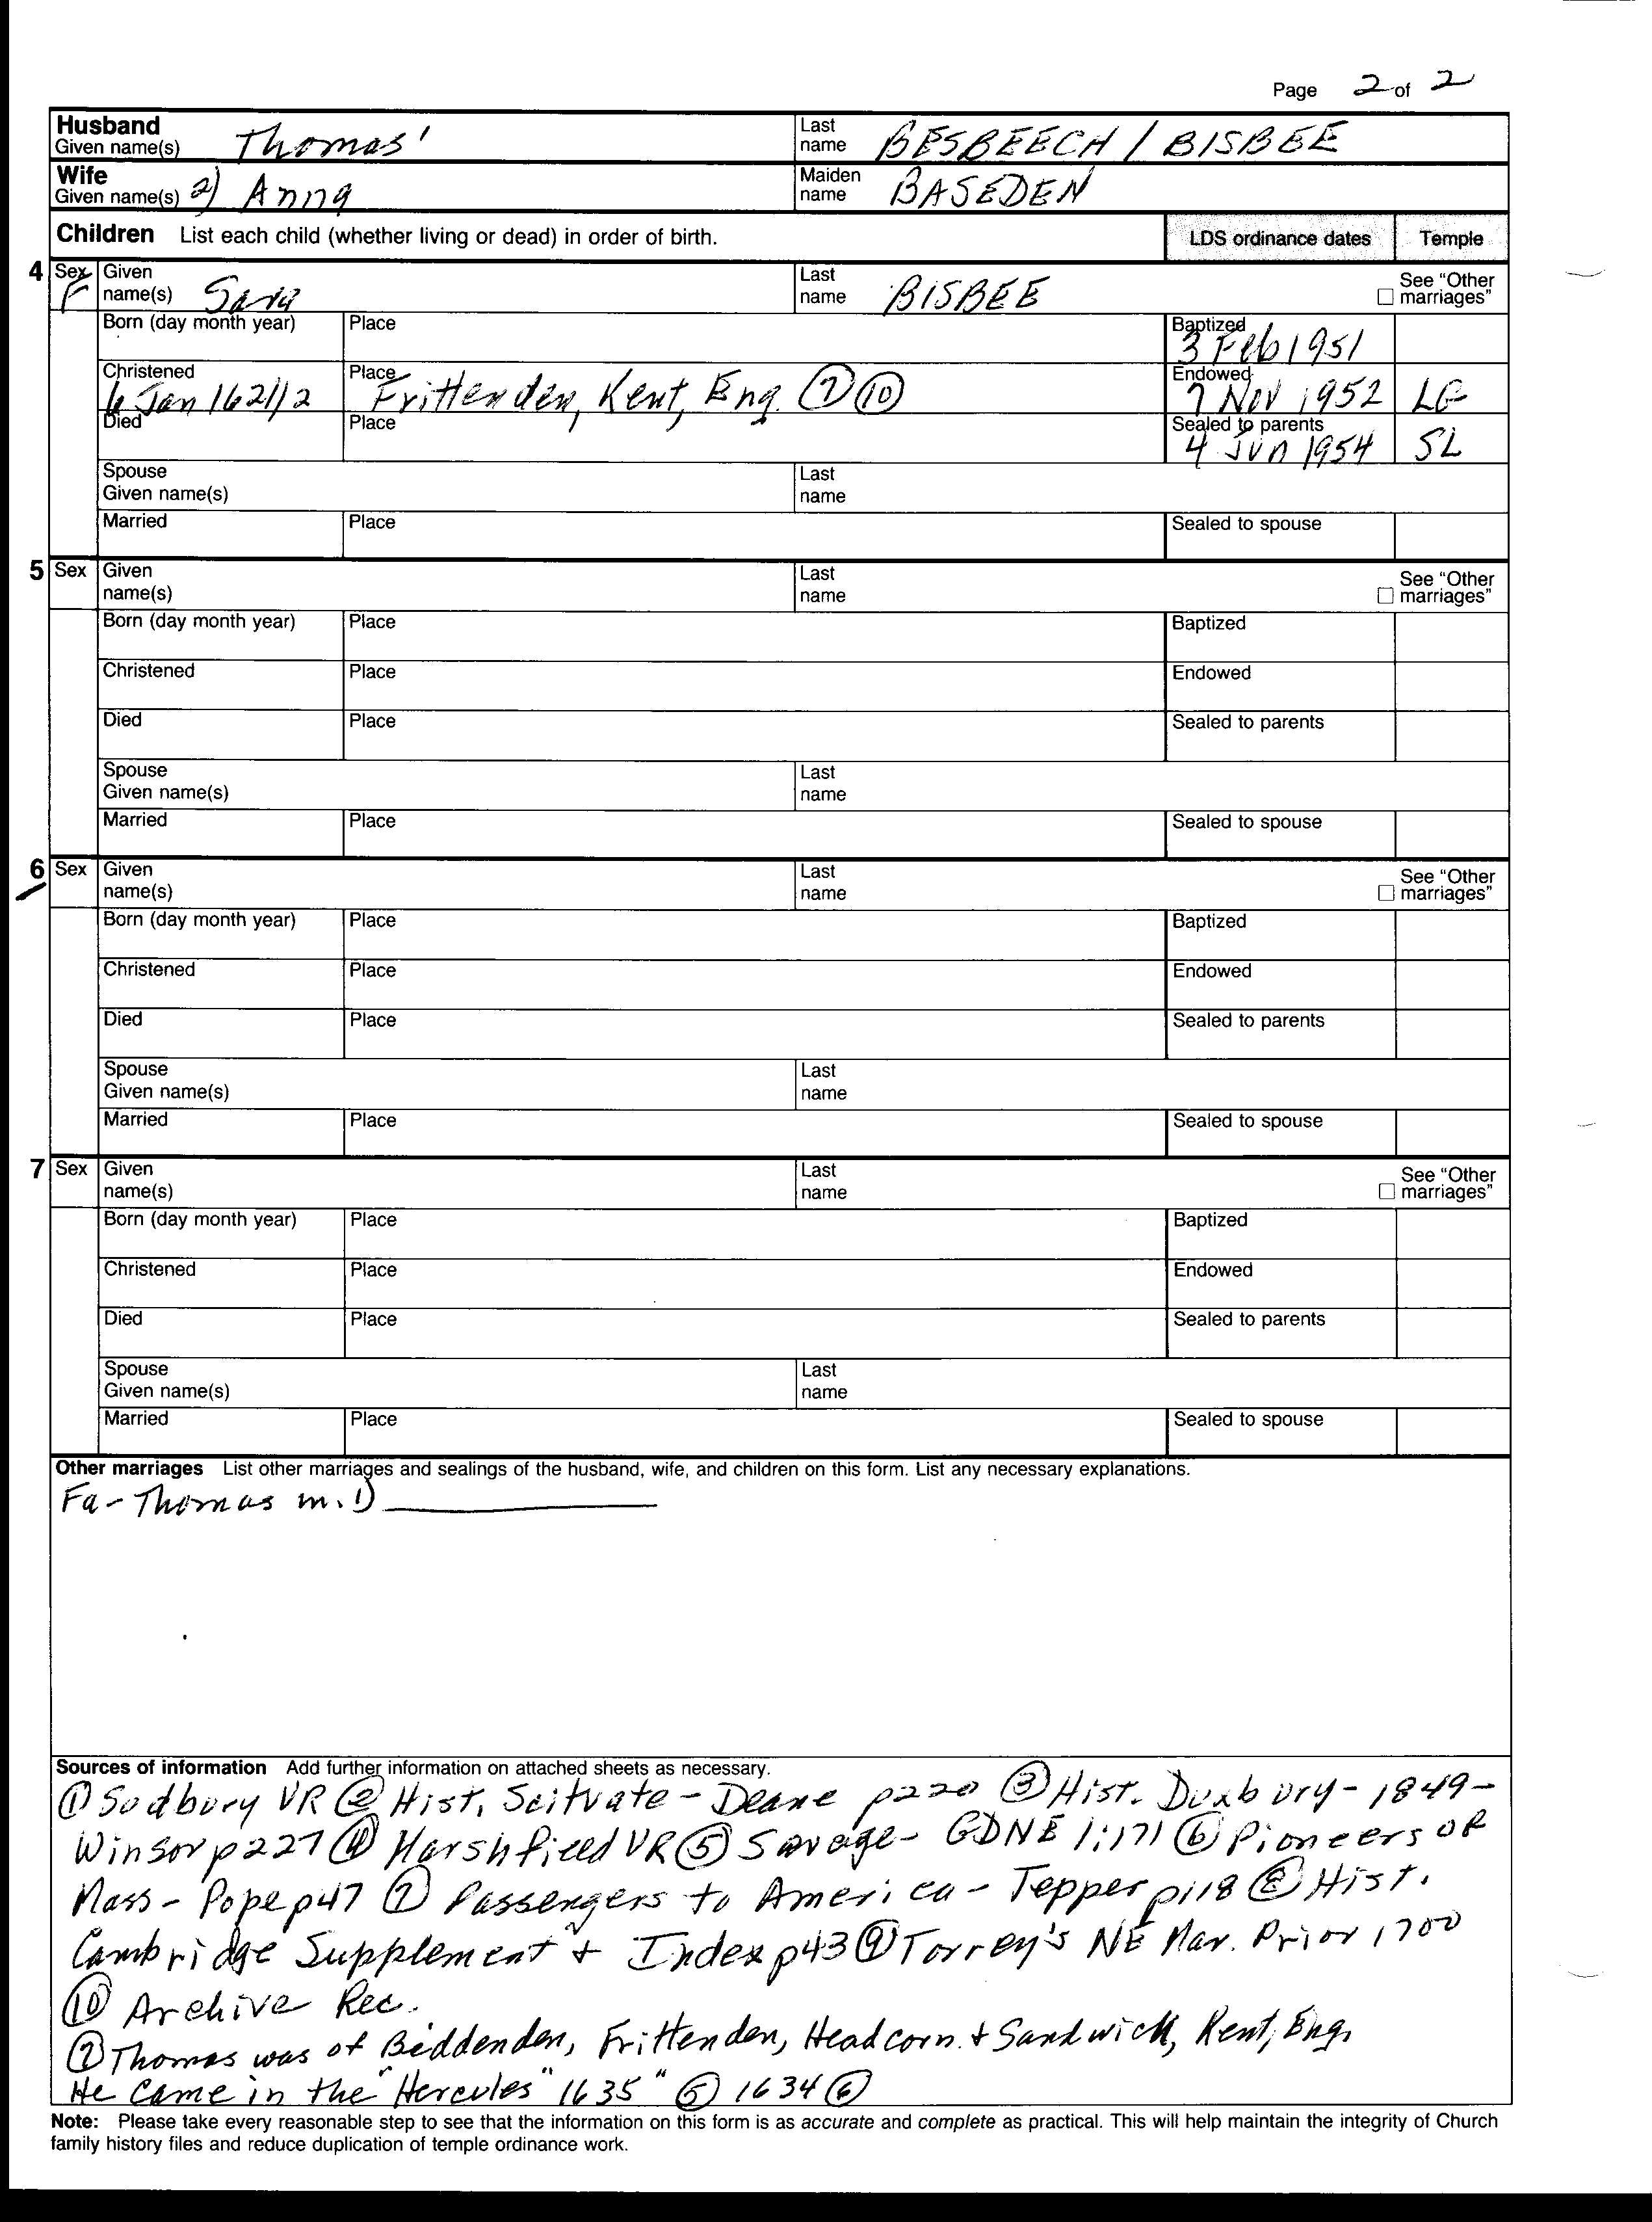 Page 2 of 2
Husband Given name(s) Thomas¹ Last name BESBEECH / BISBEE
Wife Given name(s) 2) Anna Maiden name BASEDEN
Children List each child (whether living or dead) in order of birth. LDS ordinance dates Temple
4 Sex F Given name(s) Sara Last name BISBEE See "Other marriages"
Born (day month year) Place Baptized 3 Feb 1951
Christened 6 Jan 1621/2 Place Frittenden, Kent, Eng. ⑦⑩ Endowed 7 Nov 1952 LG
Died Place Sealed to parents 4 Jun 1954 SL
Spouse Given name(s) Last name
Married Place Sealed to spouse
5 Sex Given name(s) Last name See "Other marriages"
Born (day month year) Place Baptized
Christened Place Endowed
Died Place Sealed to parents
Spouse Given name(s) Last name
Married Place Sealed to spouse
6 Sex Given name(s) Last name See "Other marriages"
Born (day month year) Place Baptized
Christened Place Endowed
Died Place Sealed to parents
Spouse Given name(s) Last name
Married Place Sealed to spouse
7 Sex Given name(s) Last name See "Other marriages"
Born (day month year) Place Baptized
Christened Place Endowed
Died Place Sealed to parents
Spouse Given name(s) Last name
Married Place Sealed to spouse
Other marriages List other marriages and sealings of the husband, wife, and children on this form. List any necessary explanations.
Fa - Thomas m. 1)
Sources of information Add further information on attached sheets as necessary.
① Sudbury VR ② Hist. Scituate - Deane p220 ③ Hist. Duxbury - 1849 -
Winsor p227 ④ Marshfield VR ⑤ Savage - GDNE 1:171 ⑥ Pioneers of
Mass - Pope p47 ⑦ Passengers to America - Tepper p118 ⑧ Hist.
Cambridge Supplement + Index p43 ⑨ Torrey's NE Mar. Prior 1700
⑩ Archive Rec.
⑦ Thomas was of Biddenden, Frittenden, Headcorn + Sandwich, Kent, Eng.
He came in the "Hercules" 1635 " ⑤ 1634 ⑥
Note: Please take every reasonable step to see that the information on this form is as accurate and complete as practical. This will help maintain the integrity of Church
family history files and reduce duplication of temple ordinance work.